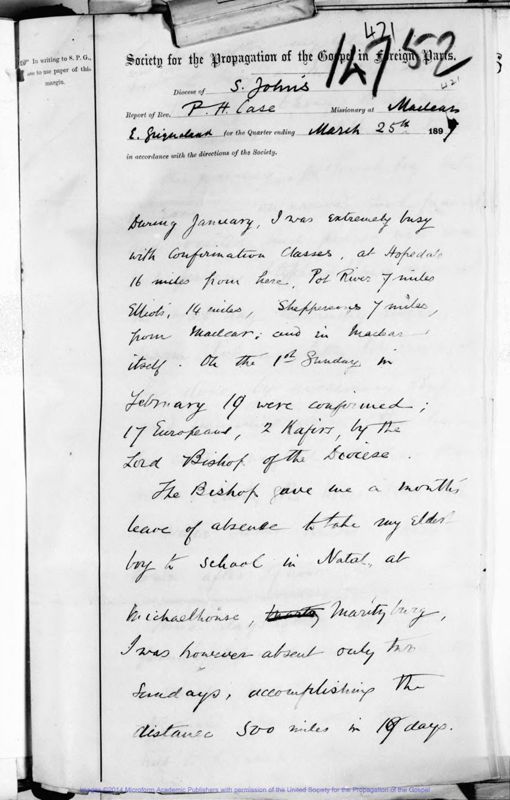 421
14752
421
☞ In writing to S. P. G.,
use to use paper of this
margin.
Society for the Propagation of the Gospel in Foreign Parts.
Diocese of S. John's
Report of Rev. P. H. Case Missionary at Maclear
E. Griqualand for the Quarter ending March 25th 1897
in accordance with the directions of the Society.
During January, I was extremely busy
with Confirmation Classes, at Hopedale
16 miles from here, Pot River 7 miles
Elliots, 14 miles, Sheppersons 7 miles,
from Maclear; and in Maclear
itself. On the 1st Sunday in
February 19 were confirmed;
17 Europeans, 2 Kafirs, by the
Lord Bishop of the Diocese.
The Bishop gave me a month's
leave of absence to take my eldest
boy to school in Natal, at
Michaelhouse, Maritzburg,
I was however absent only two
Sundays, accomplishing the
distance 500 miles in 19 days.
Images ©2014 Microform Academic Publishers with permission of the United Society for the Propagation of the Gospel